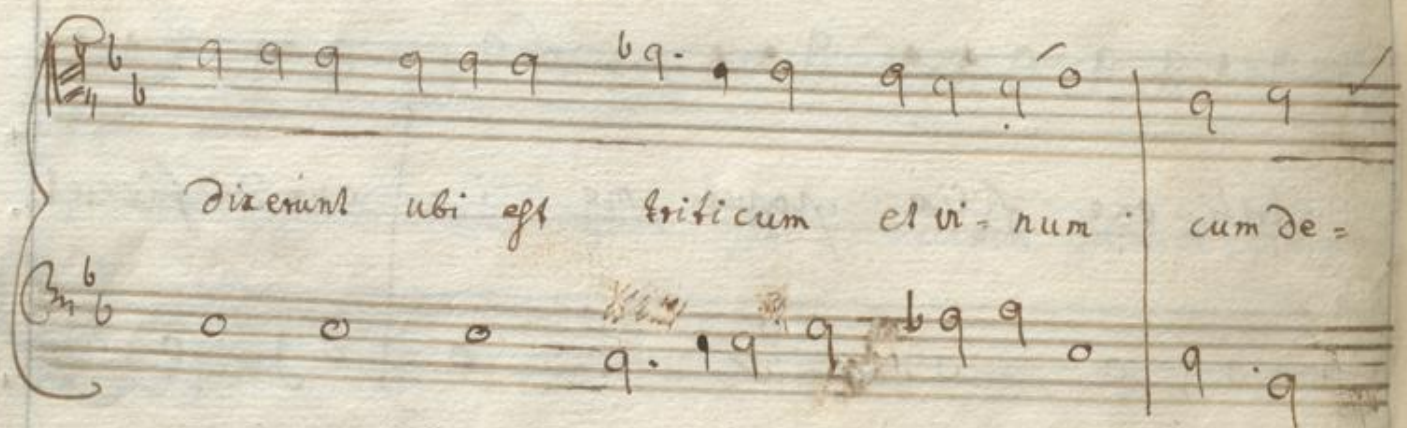 dixerunt ubi est triticum et vi = num cum de =